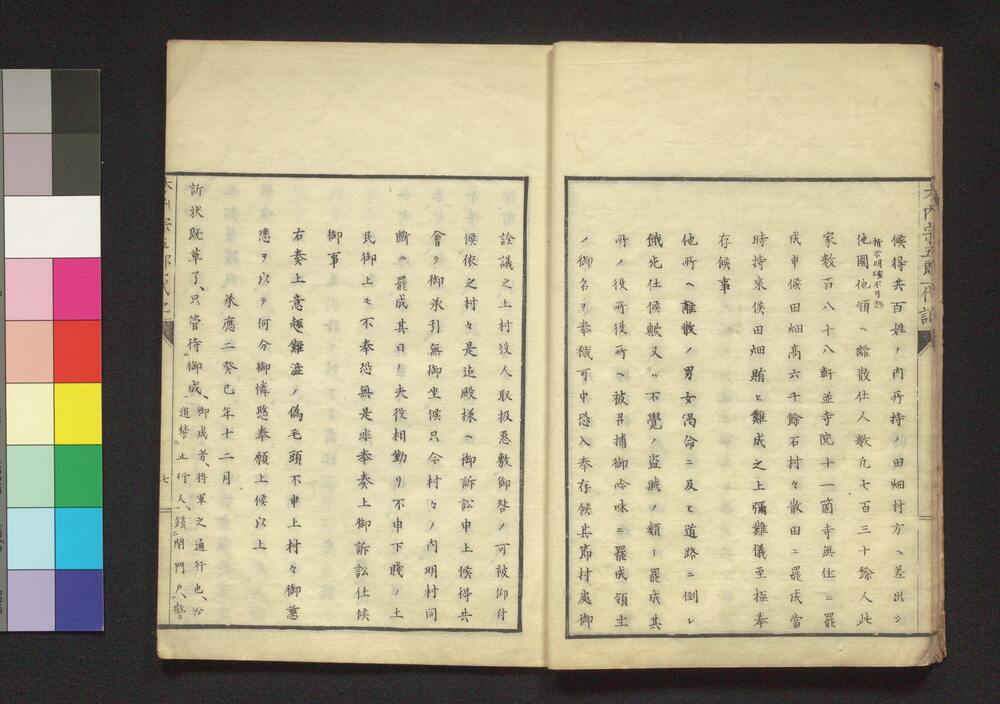 候得共百姓ノ内所持ノ田畑村方ヘ差出シ
他國他領ヘ離散仕人数凡七百三十餘人此
家数百八十八軒並寺院十一箇寺無住ニ罷
成申候田畑高六千餘石村々散田ニ罷成當
時持來候田畑賄ヒ難成之上彌難儀至極奉
存候事
他所ヘ離散ノ男女渇命ニ及ヒ道路ニ倒レ
餓死仕候歟又ハ不覺ノ盗賊ノ類ニ罷成其
所ノ役所役所ヘ被召捕御吟味ニ罷成領主
ノ御名ヲ奉穢可申恐入奉存候其節村處御
詮議之上村役人取扱悪敷御咎ノ可被仰付
候依之村々是迄殿様ヘ御訴訟申上候得共
會テ御承引無御坐候只今村々ノ内明村同
断ニ罷成其日ノ夫役相勤リ不申下賤ノ土
民御上モ不奉恐無是非奉奏上御訴訟仕候
御事
右奏上意趣難澁ノ偽毛頭不申上村々御慈
悲ヲ以テ何分御憐愍奉願上候以上
承應二癸巳年十二月
訴状既草了、只管待御成、
御成者、將軍之通行也、分
道禁止行人、鎖閉門戸、警
七